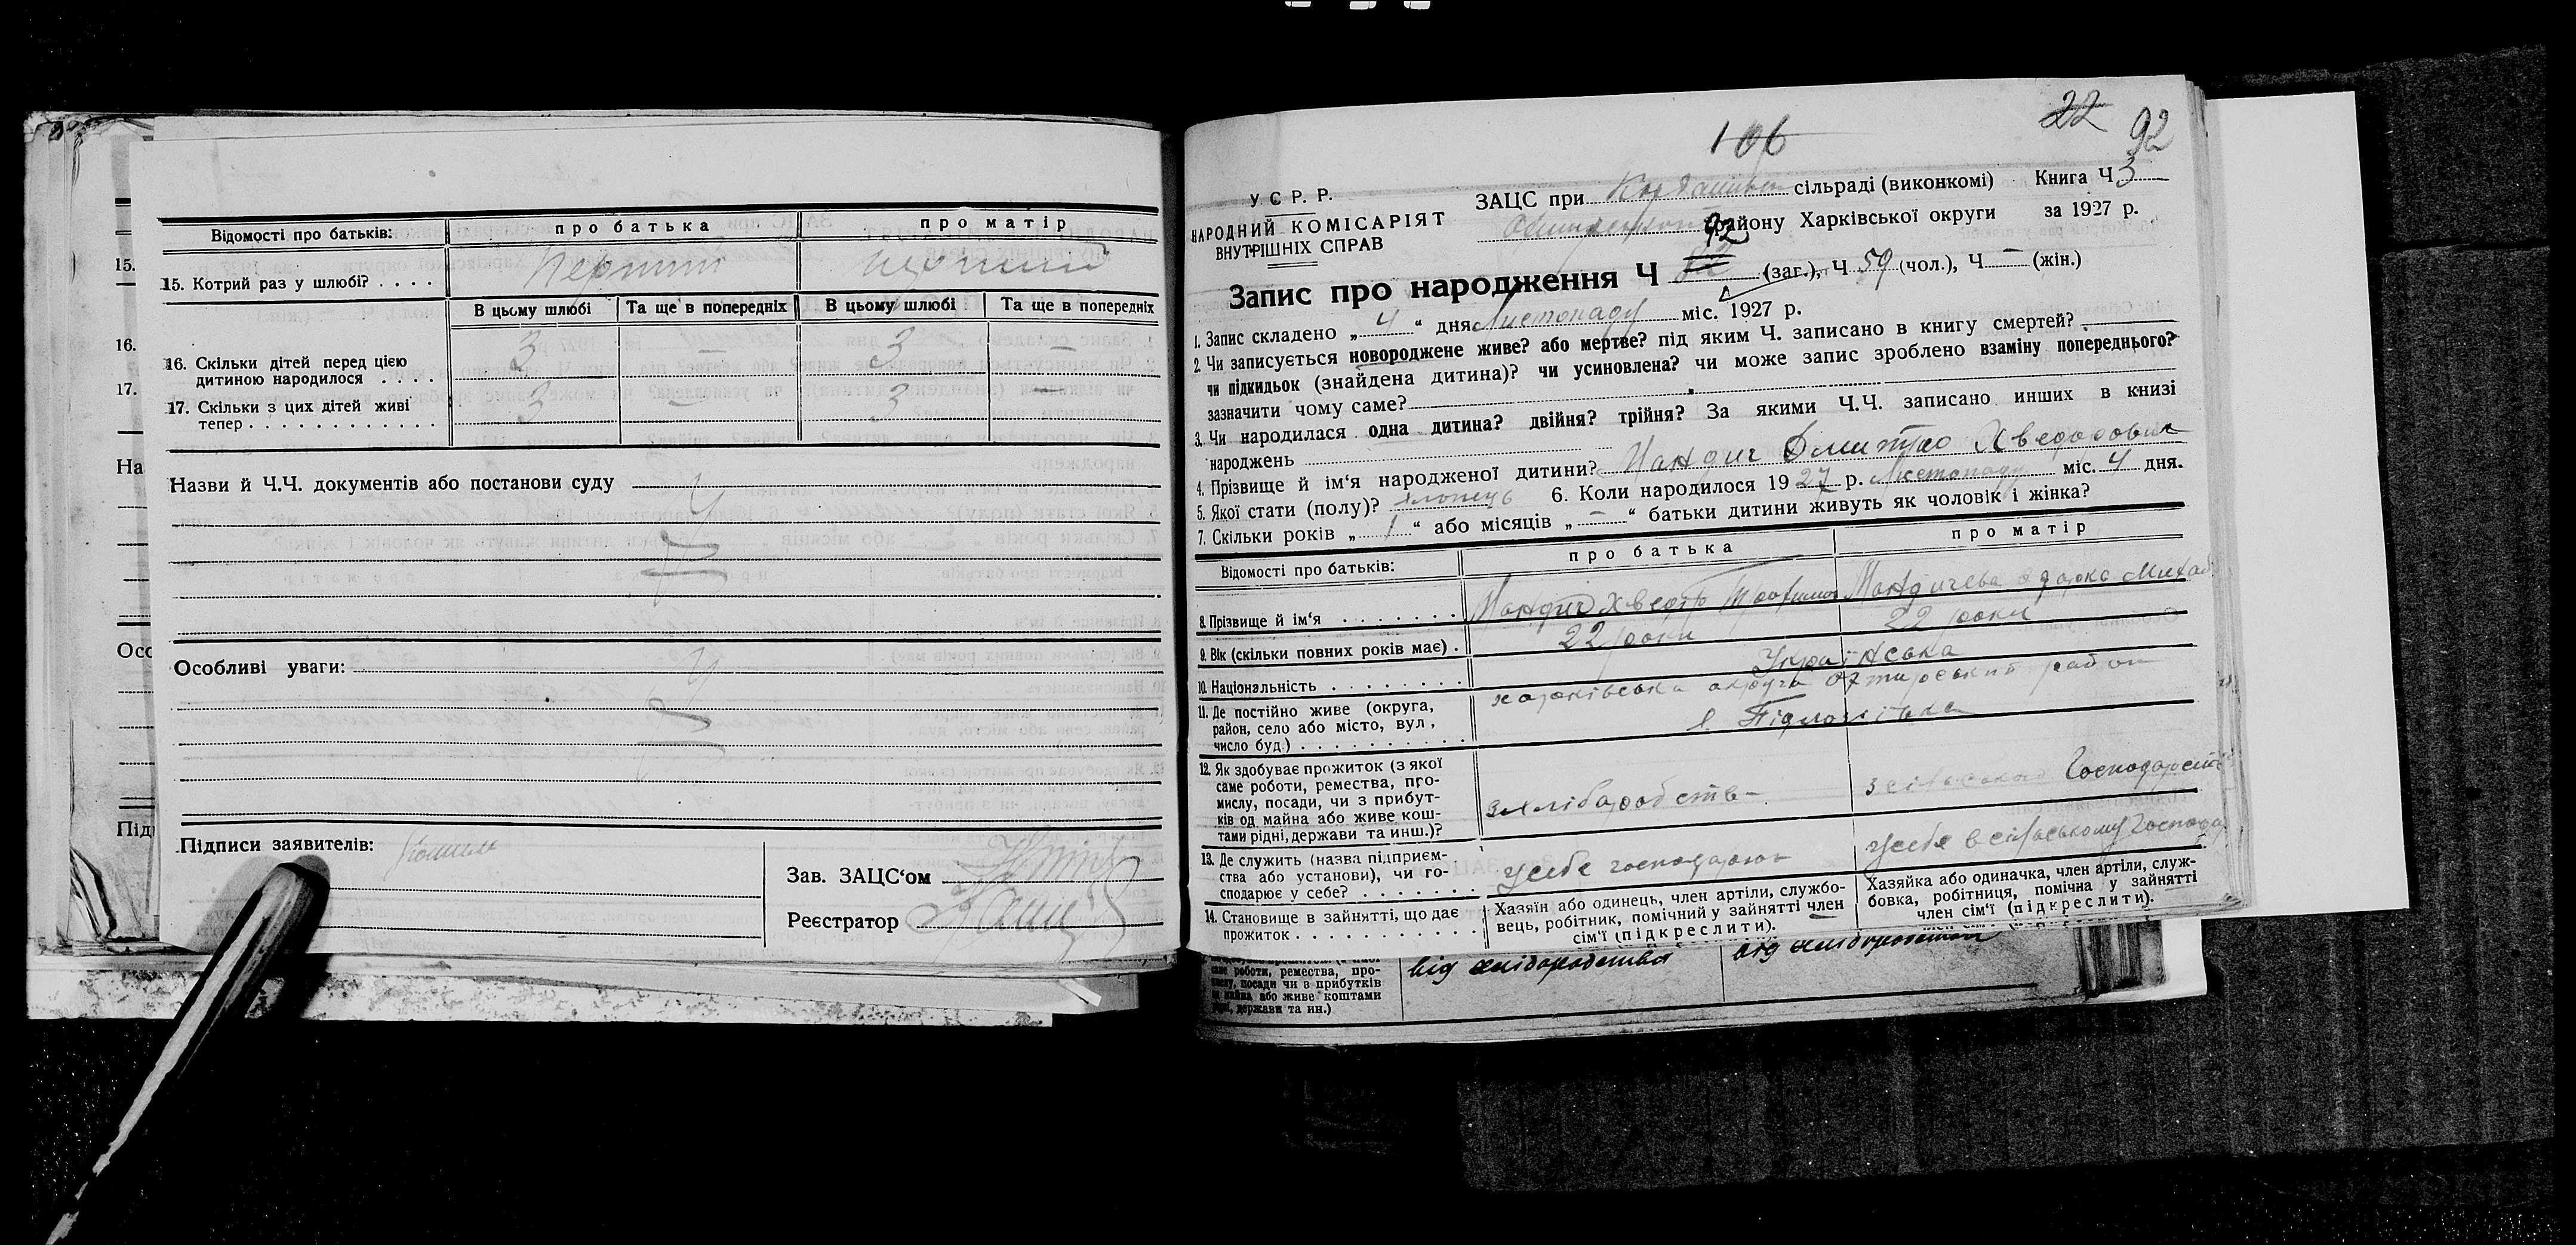 Відомості про батьків:
про батька
про матір
15. Котрий раз у шлюбі? . . . .
Перший
перший
В цьому шлюбі
Та ще в попередніх
В цьому шлюбі
Та ще в попередніх
16. Скільки дітей перед цією
дитиною народилося . . . .
3
—
3
—
17. Скільки з цих дітей живі
тепер . . . . . . . . . . . .
3
—
3
—
Назви й Ч.Ч. документів або постанови суду
Особливі уваги:
Підписи заявителів:
Зав. ЗАЦС'ом
Реєстратор
15.
16.
17.
На
Осо
Підп
106
22
92
У. С. Р. Р.
НАРОДНИЙ КОМІСАРІЯТ
ВНУТРІШНІХ СПРАВ
ЗАЦС при сільраді (виконкомі) Книга Ч 3
району Харківської округи за 1927 р.
Запис про народження Ч 92 (заг.), Ч 59 (чол.), Ч — (жін.)
1. Запис складено „ 4 “ дня Листопаду міс. 1927 р.
2. Чи записується новороджене живе? або мертве? під яким Ч. записано в книгу смертей?
чи підкидьок (знайдена дитина)? чи усиновлена? чи може запис зроблено взаміну попереднього?
зазначити чому саме?
3. Чи народилася одна дитина? двійня? трійня? За якими Ч.Ч. записано инших в книзі
народжень
4. Прізвище й ім'я народженої дитини? Мандич Дмитро Хведорович
5. Якої стати (полу)? хлопець 6. Коли народилося 1927 р. Листопаду міс. 4 дня.
7. Скільки років „ 1 “ або місяців „ — “ батьки дитини живуть як чоловік і жінка?
Відомості про батьків:
про батька
про матір
8. Прізвище й ім'я . . . . . . .
Мандич Хведір Трофимов
Мандичева Одарка Михай
9. Вік (скільки повних років має) .
22 роки
22 роки
10. Національність . . . . . . . .
Українська
11. Де постійно живе (округа,
район, село або місто, вул.,
число буд.) . . . . . . . . . .
харківська округа Охтирський район
12. Як здобуває прожиток (з якої
саме роботи, ремества, про-
мислу, посади, чи з прибут-
ків од майна або живе кош-
тами рідні, держави та инш.)?
з хліборобств
з сільського Господарств
13. Де служить (назва підприєм-
ства або установи), чи го-
сподарює у себе? . . . . . . .
усебе господарює
усебе в сільському Господар
14. Становище в зайнятті, що дає
прожиток . . . . . . . . . . .
Хазяїн або одинець, член артілі, службо-
вець, робітник, помічний у зайнятті член
сім'ї (підкреслити).
Хазяйка або одиначка, член артіли, служ-
бовка, робітниця, помічна у зайнятті
член сім'ї (підкреслити).
саме роботи, ремества, про-
мислу, посади чи з прибутків
од майна або живе коштами
рідні, держави та ин.)
від хліборобства
від хліборобства